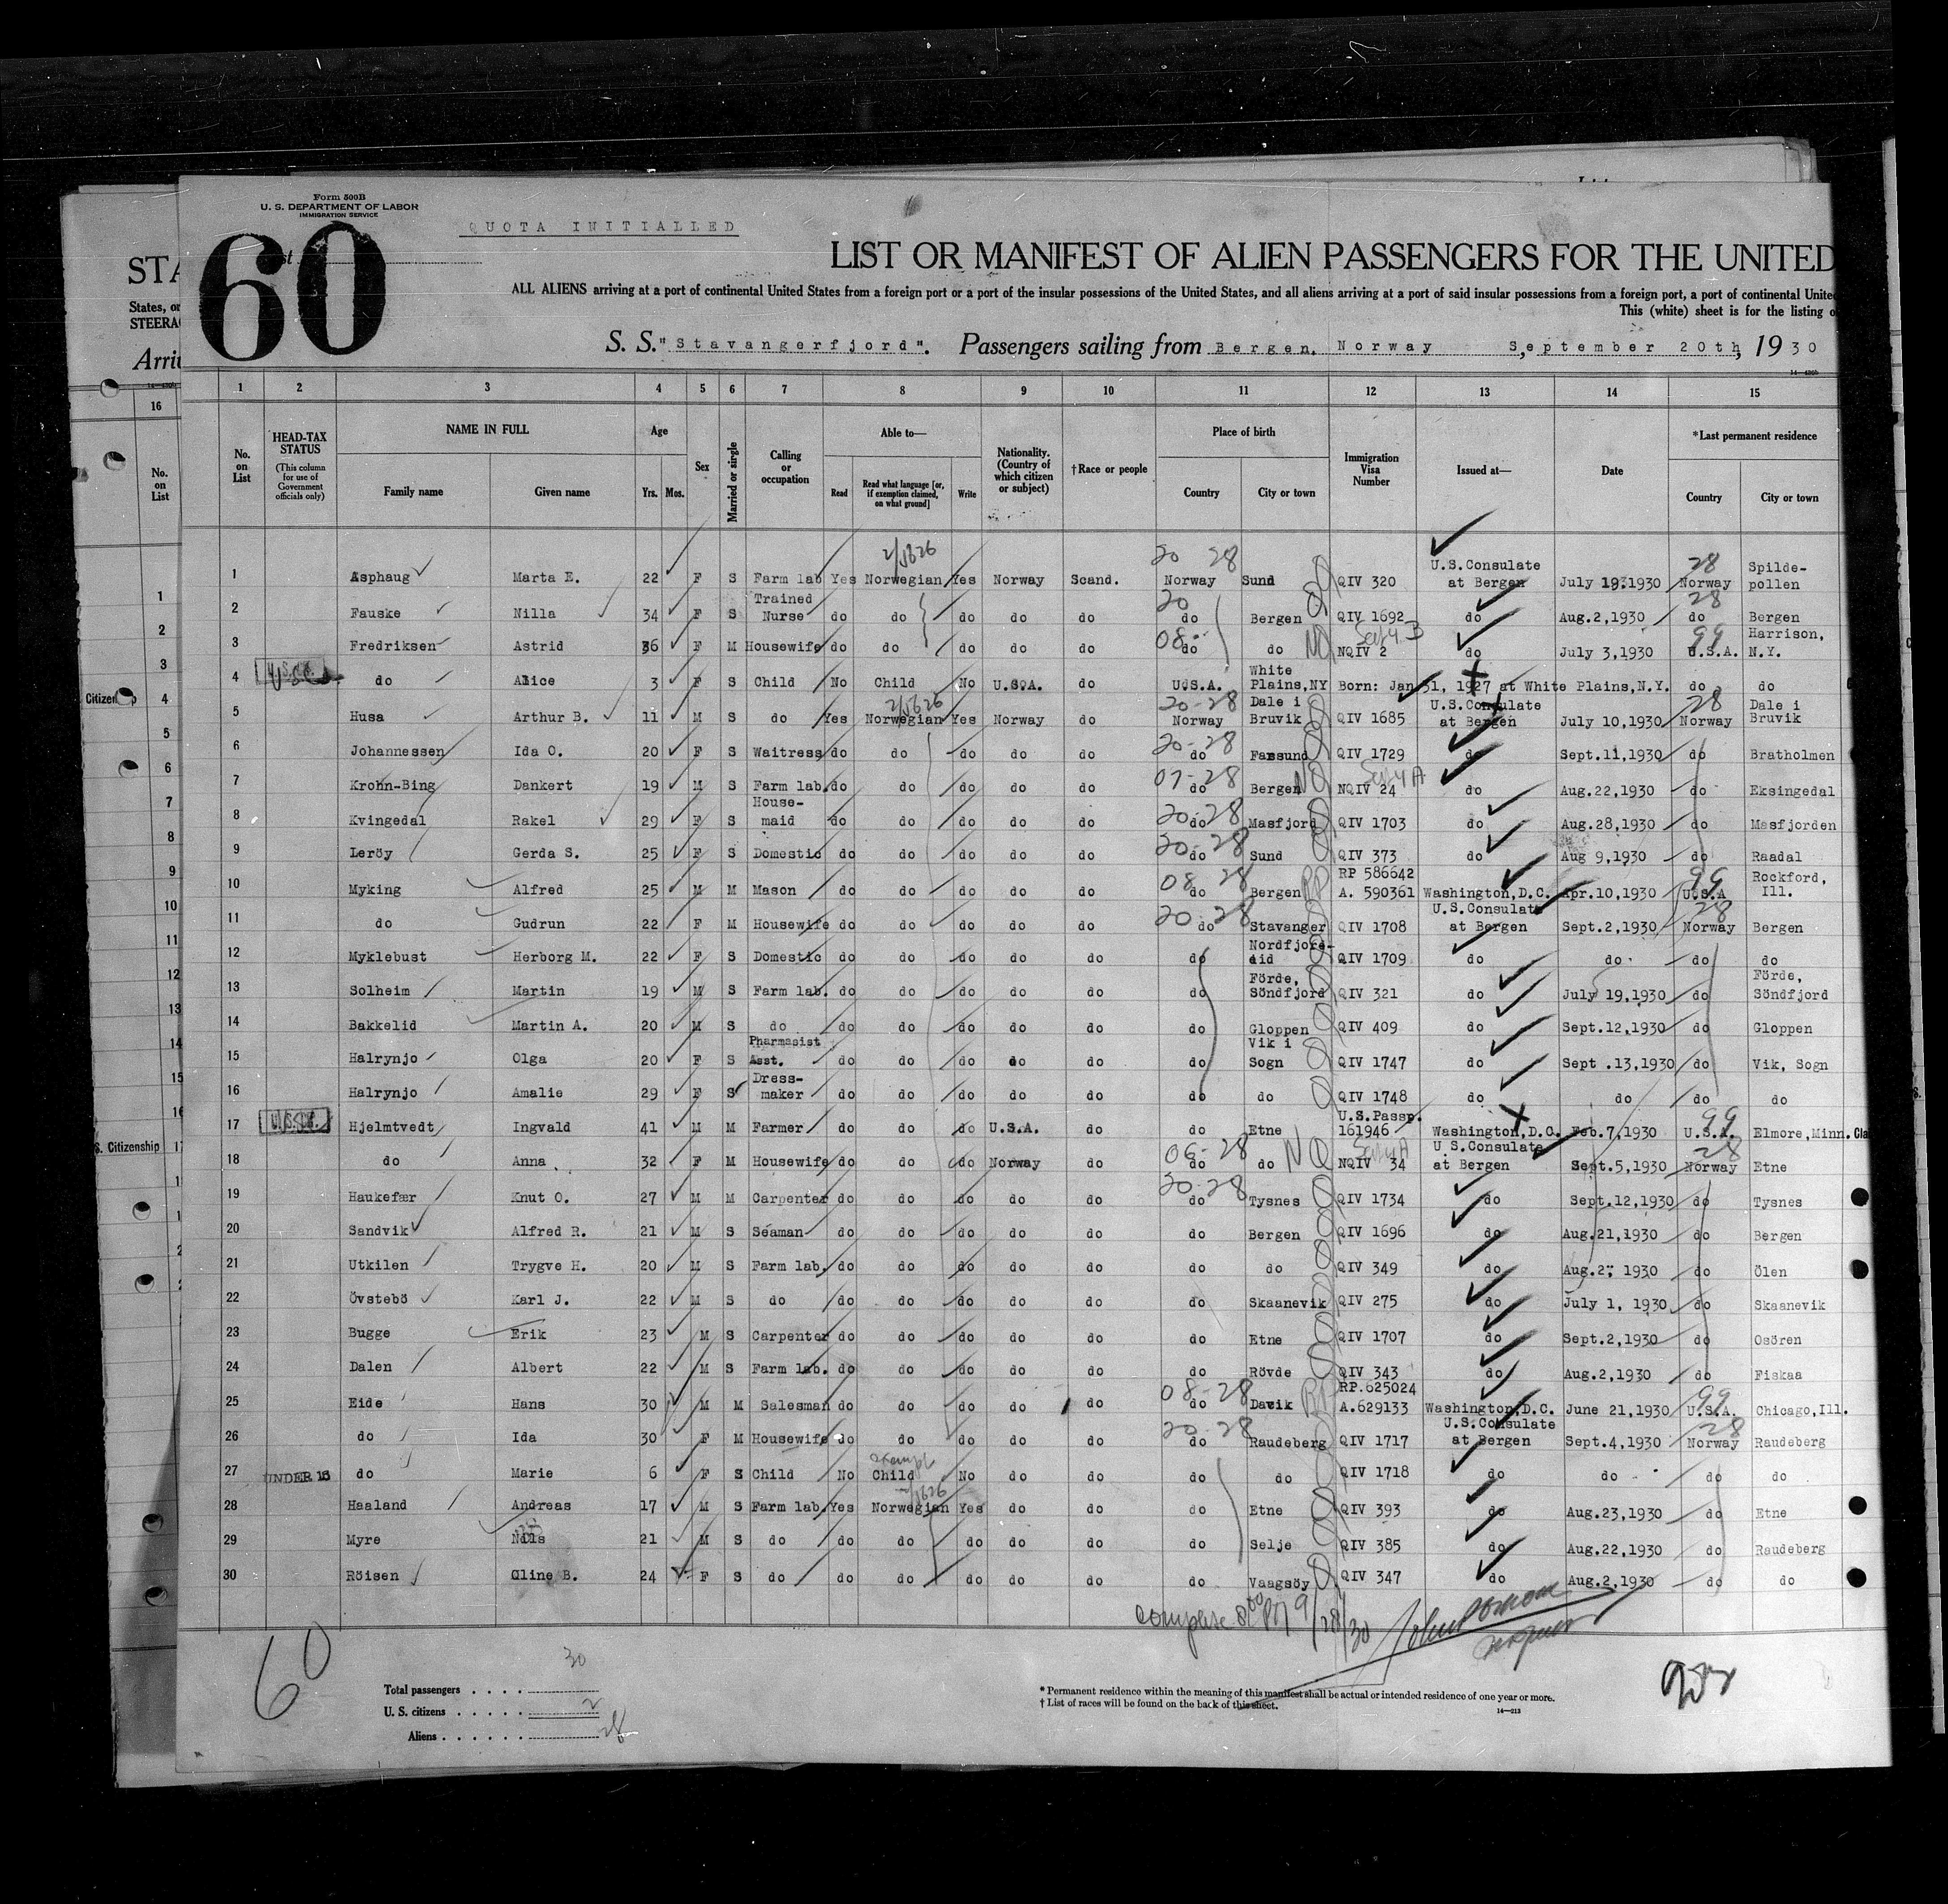 Form 500B
U. S. DEPARTMENT OF LABOR
IMMIGRATION SERVICE
QUOTA INITIALLED
60
STA
States, or
STEERA
Arri
LIST OR MANIFEST OF ALIEN PASSENGERS FOR THE UNITED
ALL ALIENS arriving at a port of continental United States from a foreign port or a port of the insular possessions of the United States, and all aliens arriving at a port of said insular possessions from a foreign port, a port of continental Unite
This (white) sheet is for the listing o
S. S. "Stavangerfjord". Passengers sailing from Bergen, Norway September 20th, 1930
1 2 3 4 5 6 7 8 9 10 11 12 13 14 15
No. on List
HEAD-TAX STATUS (This column for use of Government officials only)
NAME IN FULL
Family name Given name
Age
Yrs. Mos.
Sex
Married or single
Calling or occupation
Able to—
Read Read what language [or, if exemption claimed, on what ground] Write
Nationality. (Country of which citizen or subject)
†Race or people
Place of birth
Country City or town
Immigration Visa Number
Issued at—
Date
*Last permanent residence
Country City or town
1 Asphaug Marta E. 22 F S Farm lab Yes Norwegian Yes Norway Scand. Norway Sund QIV 320 U.S.Consulate at Bergen July 19.1930 Norway Spilde-pollen
2 Fauske Nilla 34 F S Trained Nurse do do do do do do Bergen QIV 1692 do Aug.2,1930 do Bergen
3 Fredriksen Astrid 36 F M Housewife do do do do do do do NQIV 2 do July 3,1930 U.S.A. Harrison, N.Y.
4 do Alice 3 F S Child No Child No U.S.A. do U.S.A. White Plains,NY Born: Jan 31, 1927 at White Plains,N.Y. do do
5 Husa Arthur B. 11 M S do Yes Norwegian Yes Norway do Norway Dale i Bruvik QIV 1685 U.S.Consulate at Bergen July 10,1930 Norway Dale i Bruvik
6 Johannessen Ida O. 20 F S Waitress do do do do do do Farsund QIV 1729 do Sept.11,1930 do Bratholmen
7 Krohn-Bing Dankert 19 M S Farm lab. do do do do do do Bergen NQIV 24 do Aug.22,1930 do Eksingedal
8 Kvingedal Rakel 29 F S House-maid do do do do do do Masfjord QIV 1703 do Aug.28,1930 do Masfjorden
9 Leröy Gerda S. 25 F S Domestic do do do do do do Sund QIV 373 do Aug 9,1930 do Raadal
10 Myking Alfred 25 M M Mason do do do do do do Bergen RP 586642 A. 590361 Washington,D.C. Apr.10,1930 U.S.A Rockford, Ill.
11 do Gudrun 22 F M Housewife do do do do do do Stavanger QIV 1708 U.S.Consulate at Bergen Sept.2,1930 Norway Bergen
12 Myklebust Herborg M. 22 F S Domestic do do do do do do Nordfjord-eid QIV 1709 do do do do
13 Solheim Martin 19 M S Farm lab. do do do do do do Förde, Söndfjord QIV 321 do July 19,1930 do Förde, Söndfjord
14 Bakkelid Martin A. 20 M S do do do do do do do Gloppen QIV 409 do Sept.12,1930 do Gloppen
15 Halrynjo Olga 20 F S Pharmasist Asst. do do do do do do Vik i Sogn QIV 1747 do Sept .13,1930 do Vik, Sogn
16 Halrynjo Amalie 29 F S Dress-maker do do do do do do do QIV 1748 do do do do
17 Hjelmtvedt Ingvald 41 M M Farmer do do do U.S.A. do do Etne U.S.Passp. 161946 Washington,D.C. Feb.7,1930 U.S.A. Elmore,Minn.
18 do Anna 32 F M Housewife do do do Norway do do do NQIV 34 U.S.Consulate at Bergen Sept.5,1930 Norway Etne
19 Haukefær Knut O. 27 M M Carpenter do do do do do do Tysnes QIV 1734 do Sept.12,1930 do Tysnes
20 Sandvik Alfred R. 21 M S Seaman do do do do do do Bergen QIV 1696 do Aug.21,1930 do Bergen
21 Utkilen Trygve H. 20 M S Farm lab. do do do do do do do QIV 349 do Aug.27 1930 do Ölen
22 Övstebö Karl J. 22 M S do do do do do do do Skaanevik QIV 275 do July 1, 1930 do Skaanevik
23 Bugge Erik 23 M S Carpenter do do do do do do Etne QIV 1707 do Sept.2,1930 do Osören
24 Dalen Albert 22 M S Farm lab. do do do do do do Rövde QIV 343 do Aug.2,1930 do Fiskaa
25 Eide Hans 30 M M Salesman do do do do do do Davik RP.625024 A.629133 Washington,D.C. June 21,1930 U.S.A. Chicago,Ill.
26 do Ida 30 F M Housewife do do do do do do Raudeberg QIV 1717 U.S.Consulate at Bergen Sept.4,1930 Norway Raudeberg
27 UNDER 16 do Marie 6 F S Child No Child No do do do do QIV 1718 do do do do
28 Haaland Andreas 17 M S Farm lab. Yes Norwegian Yes do do do Etne QIV 393 do Aug.23,1930 do Etne
29 Myre Nils 21 M S do do do do do do do Selje QIV 385 do Aug.22,1930 do Raudeberg
30 Röisen Oline B. 24 F S do do do do do do do Vaagsöy QIV 347 do Aug.2,1930 do do
complete 8:00 PM 9/28/30
60
Total passengers . . . . 30
U. S. citizens . . . . . 2
Aliens . . . . . . 28
* Permanent residence within the meaning of this manifest shall be actual or intended residence of one year or more.
† List of races will be found on the back of this sheet.
14—213